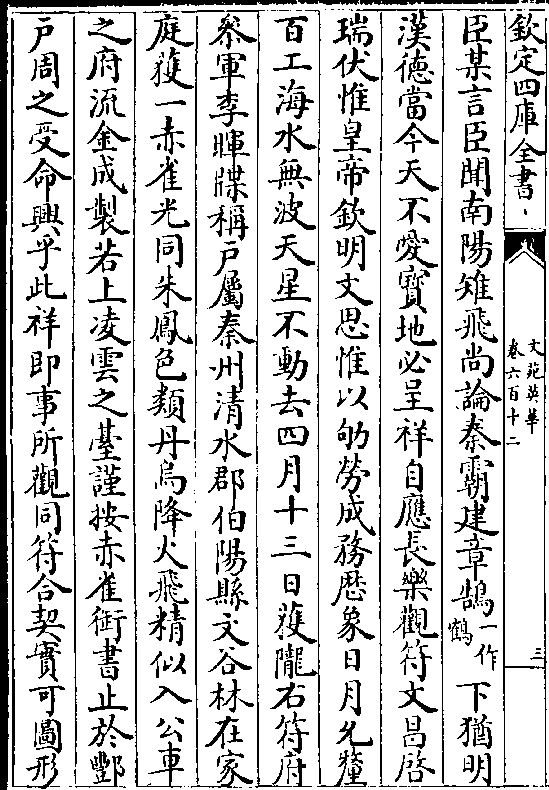 欽定四庫全書
文苑英華
卷六百十二
三
臣某言臣聞南陽雉飛尚論秦霸建章鵠一作鶴下猶明
漢德當今天不愛寳地必呈祥自應長樂觀符文昌啓
瑞伏惟皇帝欽明文思惟以劬勞成務歴象日月允釐
百工海水無波天星不動去四月十三日獲隴右符府
叅軍李暉牒稱户屬秦州清水郡伯陽縣文谷林在家
庭獲一赤雀光同朱鳳色類丹烏降火飛精似入公車
之府流金成製若上凌雲之臺謹按赤雀銜書止於酆
户周之受命興乎此祥即事所觀同符合契實可圖形